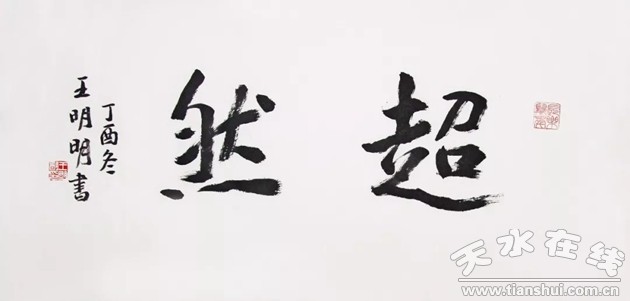 超然
丁酉冬
王明明书
天水在线
www.tianshui.com.cn